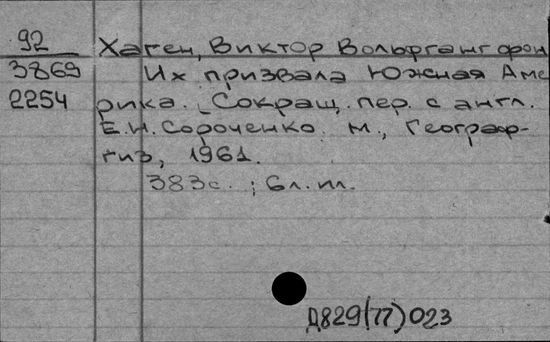 92
3869
2254
Хаген, Виктор Вольфганг фон
Их призвала Южная Аме
рика. Сокращ. пер. с англ.
Е.И. Сороченко. М., Географ-
гиз, 1961.
383с. ; 6л.ил.
Д829(77)023